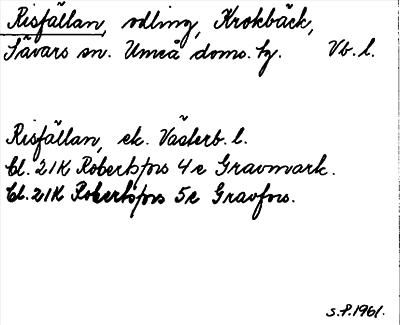 Risfällan, odling, Krokbäck,
Sävars sn. Umeå doms. hg. Vb. l.
Risfällan, ek. Västerb. l.
bl. 21K Robertsfors 4e Gravmark.
bl. 21K Robertsfors 5e Gravfors.
s.f. 1961.